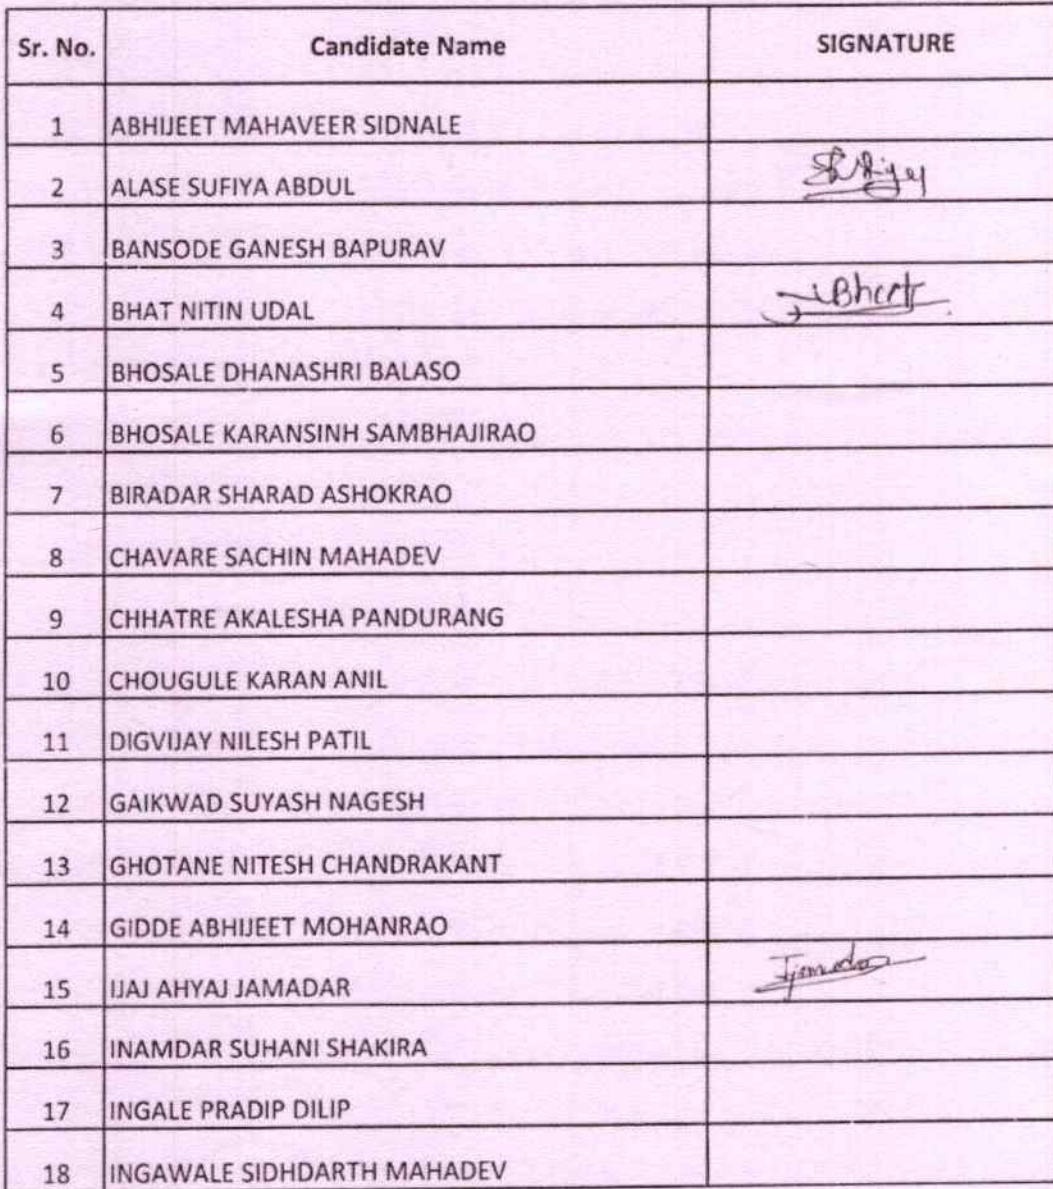 Sr. No. Candidate Name SIGNATURE
1 ABHIJEET MAHAVEER SIDNALE
2 ALASE SUFIYA ABDUL
3 BANSODE GANESH BAPURAV
4 BHAT NITIN UDAL
5 BHOSALE DHANASHRI BALASO
6 BHOSALE KARANSINH SAMBHAJIRAO
7 BIRADAR SHARAD ASHOKRAO
8 CHAVARE SACHIN MAHADEV
9 CHHATRE AKALESHA PANDURANG
10 CHOUGULE KARAN ANIL
11 DIGVIJAY NILESH PATIL
12 GAIKWAD SUYASH NAGESH
13 GHOTANE NITESH CHANDRAKANT
14 GIDDE ABHIJEET MOHANRAO
15 IJAJ AHYAJ JAMADAR
16 INAMDAR SUHANI SHAKIRA
17 INGALE PRADIP DILIP
18 INGAWALE SIDHDARTH MAHADEV